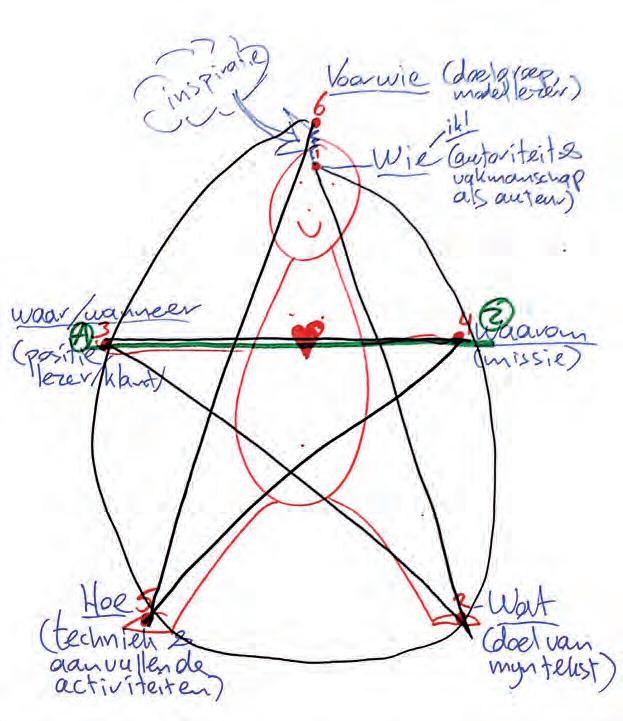 inspiratie
Voorwie (doelgroep,
modellezer)
6
ik!
1
Wie (autoriteit &
vakmanschap
als auteur)
waar/wanneer
1 3
(positie
lezer/klant)
2
4
Waarom
(missie)
Hoe 5
(techniek &
aanvullende
activiteiten)
2 Wat
(doel van
mijn tekst)